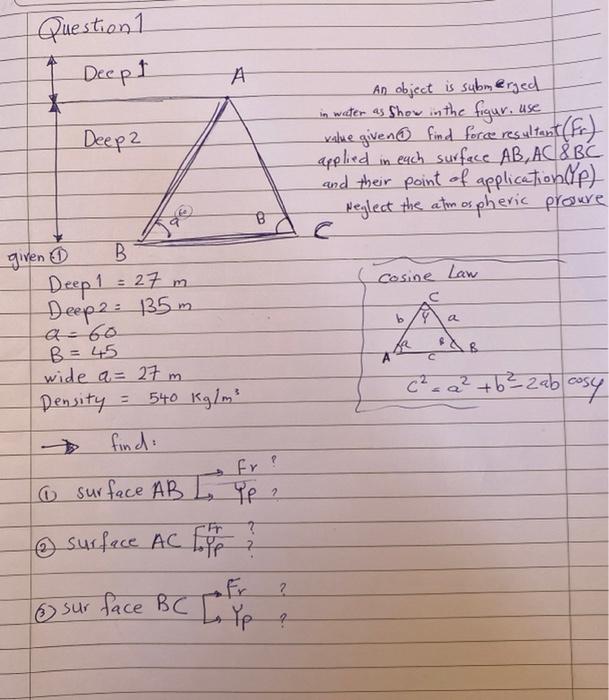 Question 1
Deep 1
A
Deep 2
B
C
a 60
B
An object is submerged
in water as Show in the figur. use
value given ① find force resultant (Fr)
applied in each surface AB, AC & BC
and their point of application (Yp)
Neglect the atmospheric presure
given ①
Deep 1 = 27 m
Deep 2 = 135 m
a = 60
B = 45
wide a = 27 m
Density = 540 Kg/m³
Cosine Law
C
b γ a
A a c B B
c² = a² + b² - 2ab cosγ
→ find:
① surface AB Fr ?
Yp ?
② surface AC Fr ?
Yp ?
③ sur face BC Fr ?
Yp ?